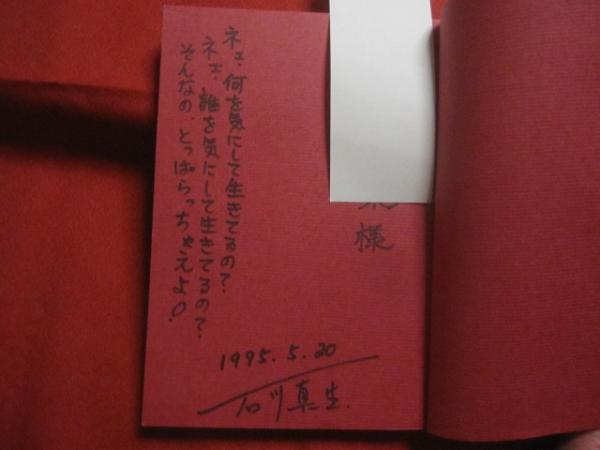 様
ネェ、何を気にして生きてるの?
ネェ、誰を気にして生きてるの?
そんなの、とっぱらっちゃえよ!
1995.5.20
石川真生